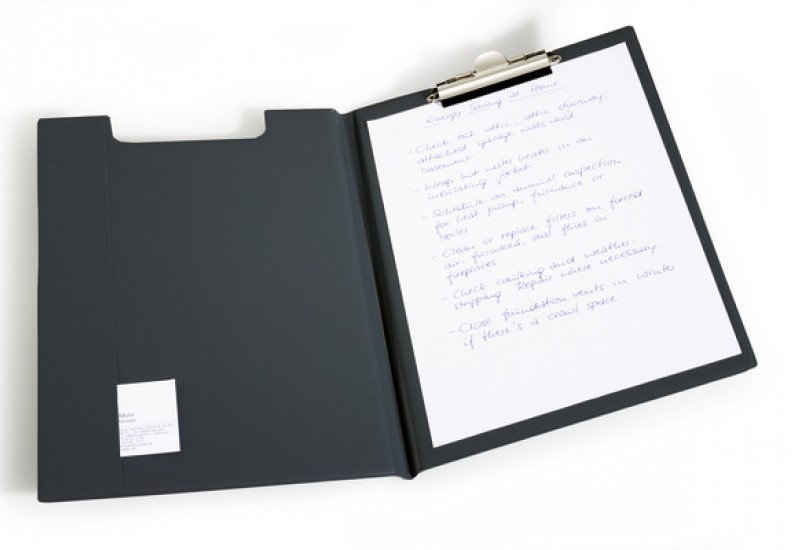 Energy Saving at Home
- Check out attic, attic stairway,
attached garage walls and
basement
- Wrap hot water heater in an
insulating jacket
- Schedule an annual inspection
for heat pump, furnance or
boiler
- Clean or replace filters on forced
air furnaces, seal flues in
fireplaces
- Check caulking and weather-
stripping. Repair where necessary.
- Close foundation vents in winter
if there's a crawl space